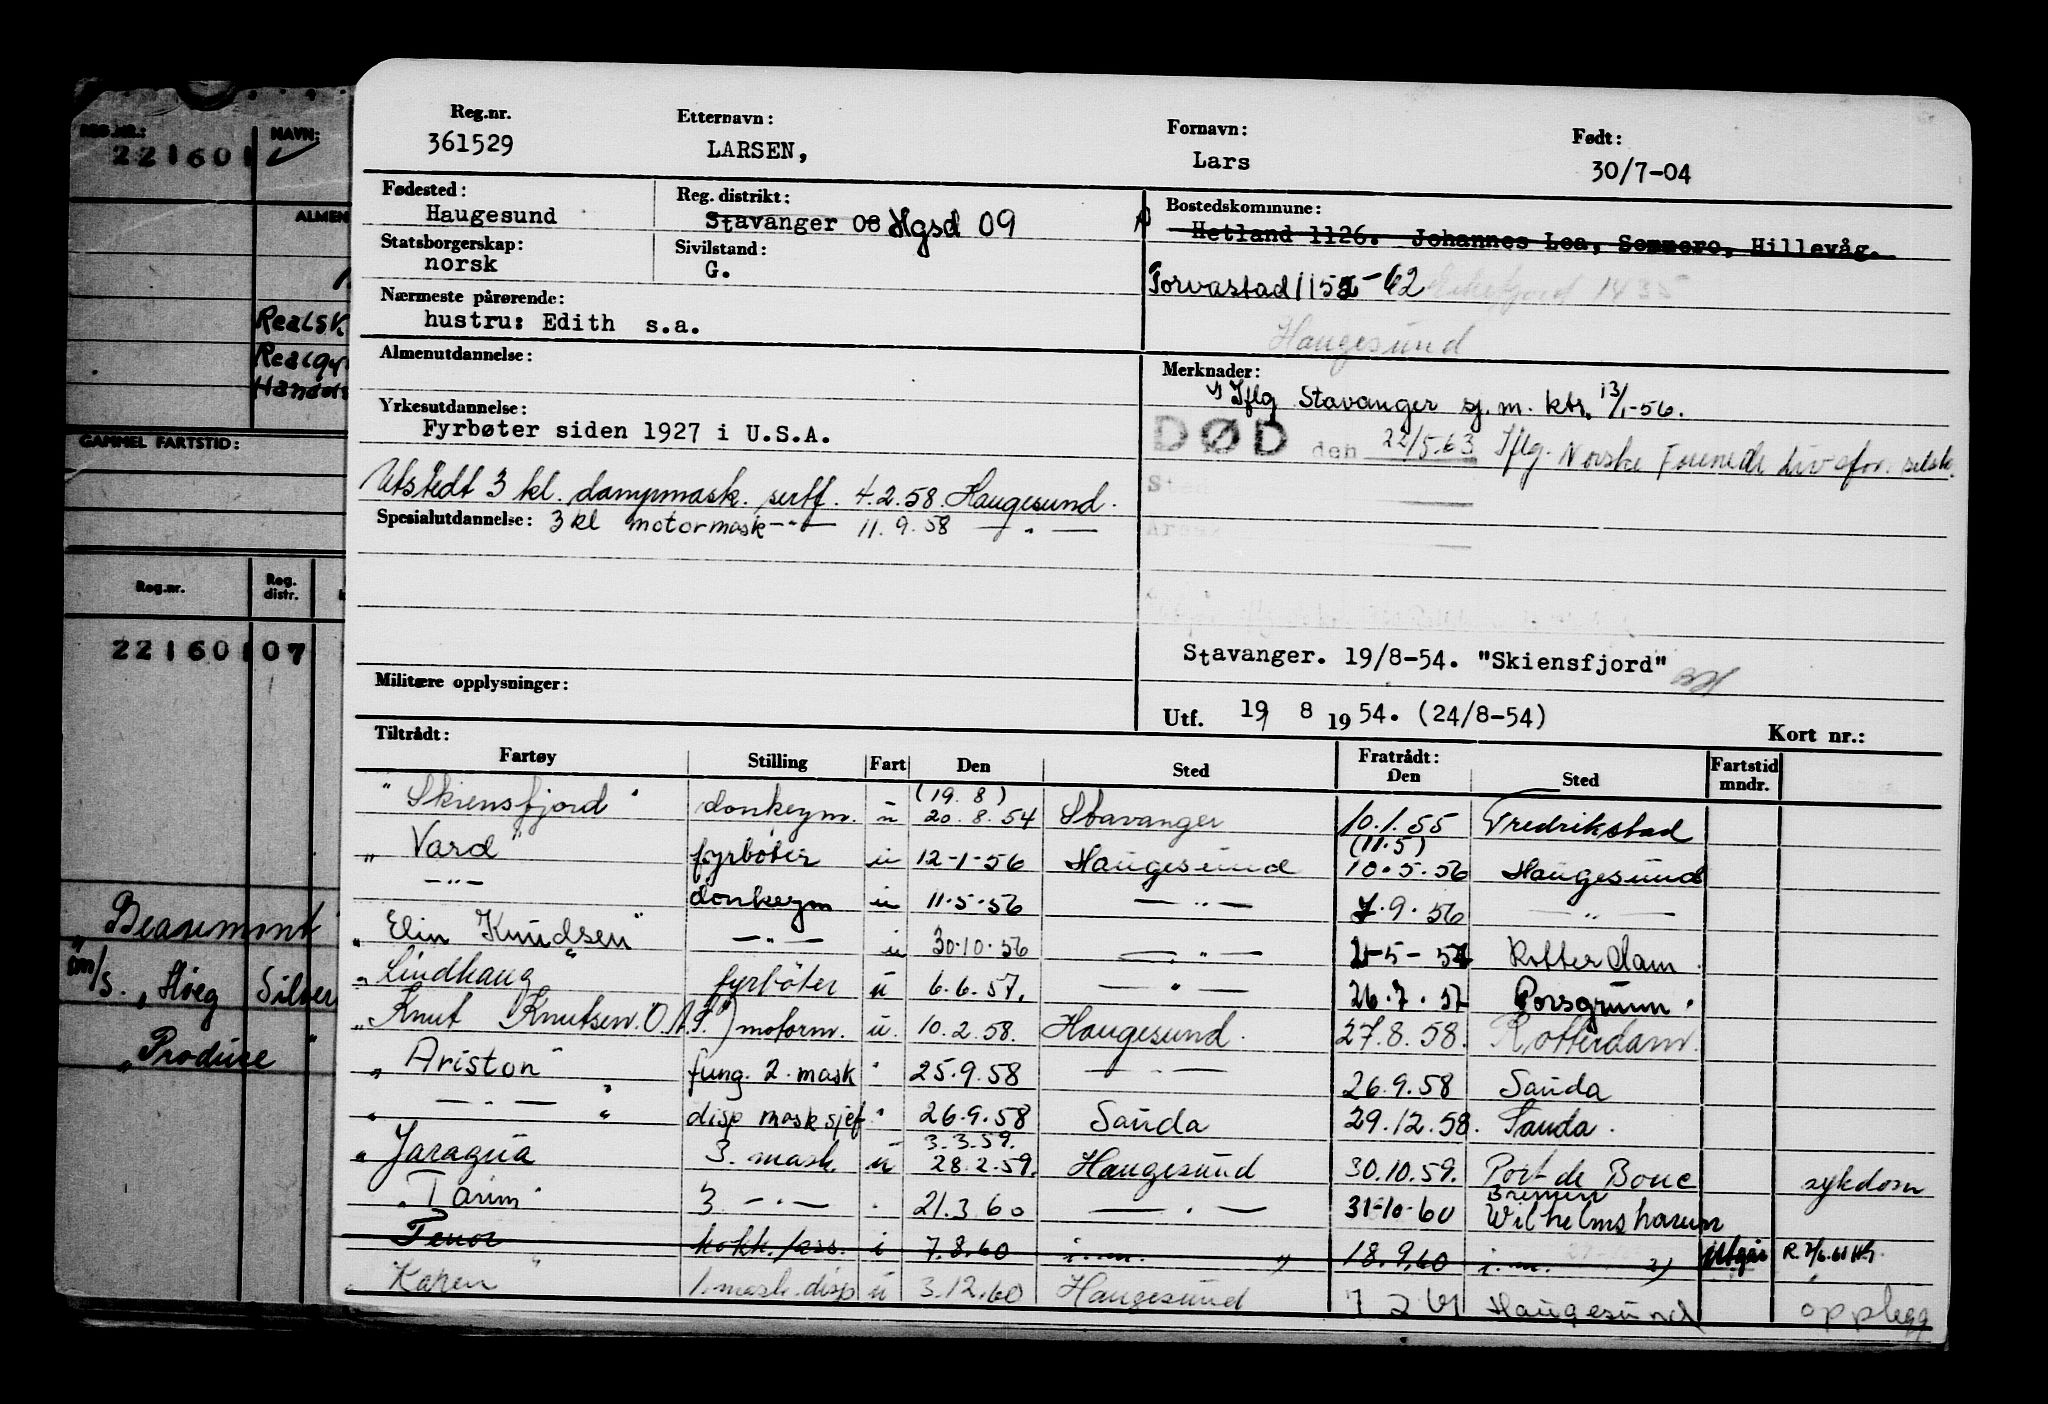 REG.NR.: NAVN:
221601
ALMEN
Realsk.
GAMMEL FARTSTID:
Reg.nr. Reg. distr.
221601 07
"Beaumont"
m/s. "Høeg Silver
"Produce"
Reg.nr. Etternavn: Fornavn: Født:
361529 LARSEN, Lars 30/7-04
Fødested: Reg. distrikt: Bostedskommune:
Haugesund Stavanger 08 Hgsd 09 Hetland 1126. Johannes Loa, Sommero, Hillevåg.
Statsborgerskap: Sivilstand:
norsk G.
Torvastad 1152-62
Nærmeste pårørende:
hustru: Edith s.a.
Haugesund
Almenutdannelse: Merknader:
Iflg Stavanger sj. m. ktr. 13/1-56.
Yrkesutdannelse:
Fyrbøter siden 1927 i U.S.A.
DØD den 22/5.63 Iflg. Norske Forenede Livsfor. selsk.
Utstedt 3 kl. dampmask. sertf. 4.2.58. Haugesund.
Spesialutdannelse: 3 kl motormask —"— 11.9.58 —"—
Stavanger. 19/8-54. "Skiensfjord"
Militære opplysninger:
Utf. 19/ 8 1954. (24/8-54) Kort nr.:
Tiltrådt: Fratrådt:
Fartøy Stilling Fart Den Sted Den Sted Fartstid mndr.
"Skiensfjord" donkeym. u (19.8) 20.8.54 Stavanger 10.1.55 Fredrikstad
"Vard" fyrbøter u 12-1-56 Haugesund (11.5) 10.5.56 Haugesund
—"— donkeym u 11.5.56 —"— 7.9.56 —"—
"Elin Knudsen" —"— u 30.10.56 —"— 21-5-57 Rotterdam
"Lindhaug" fyrbøter u 6.6.57. —"— 26.7.57 Porsgrunn.
"Knut Knutsen O.A.S." motorm. u. 10.2.58. Haugesund. 27.8.58. Rotterdam.
"Ariston" fung. 2. mask " 25.9.58 —"— 26.9.58 Sauda
" —"— " disp masksjef " 26.9.58 Sauda 29.12.58. Sauda.
"Jaragua 3. mask u 3.3.59. 28.2.59. Haugesund 30.10.59. Port de Bouc sykdom
"Tarim" 3 —"— " 21.3.60 —"— 31-10-60 Bremen Wilhelmshaven
Tenor kokk./ass. i 7.8.60 i.m. " 18.9.60 i.m. utgår
"Karen 1. mask. disp u 3.12.60 Haugesund 7 2 61 Haugesund opplegg